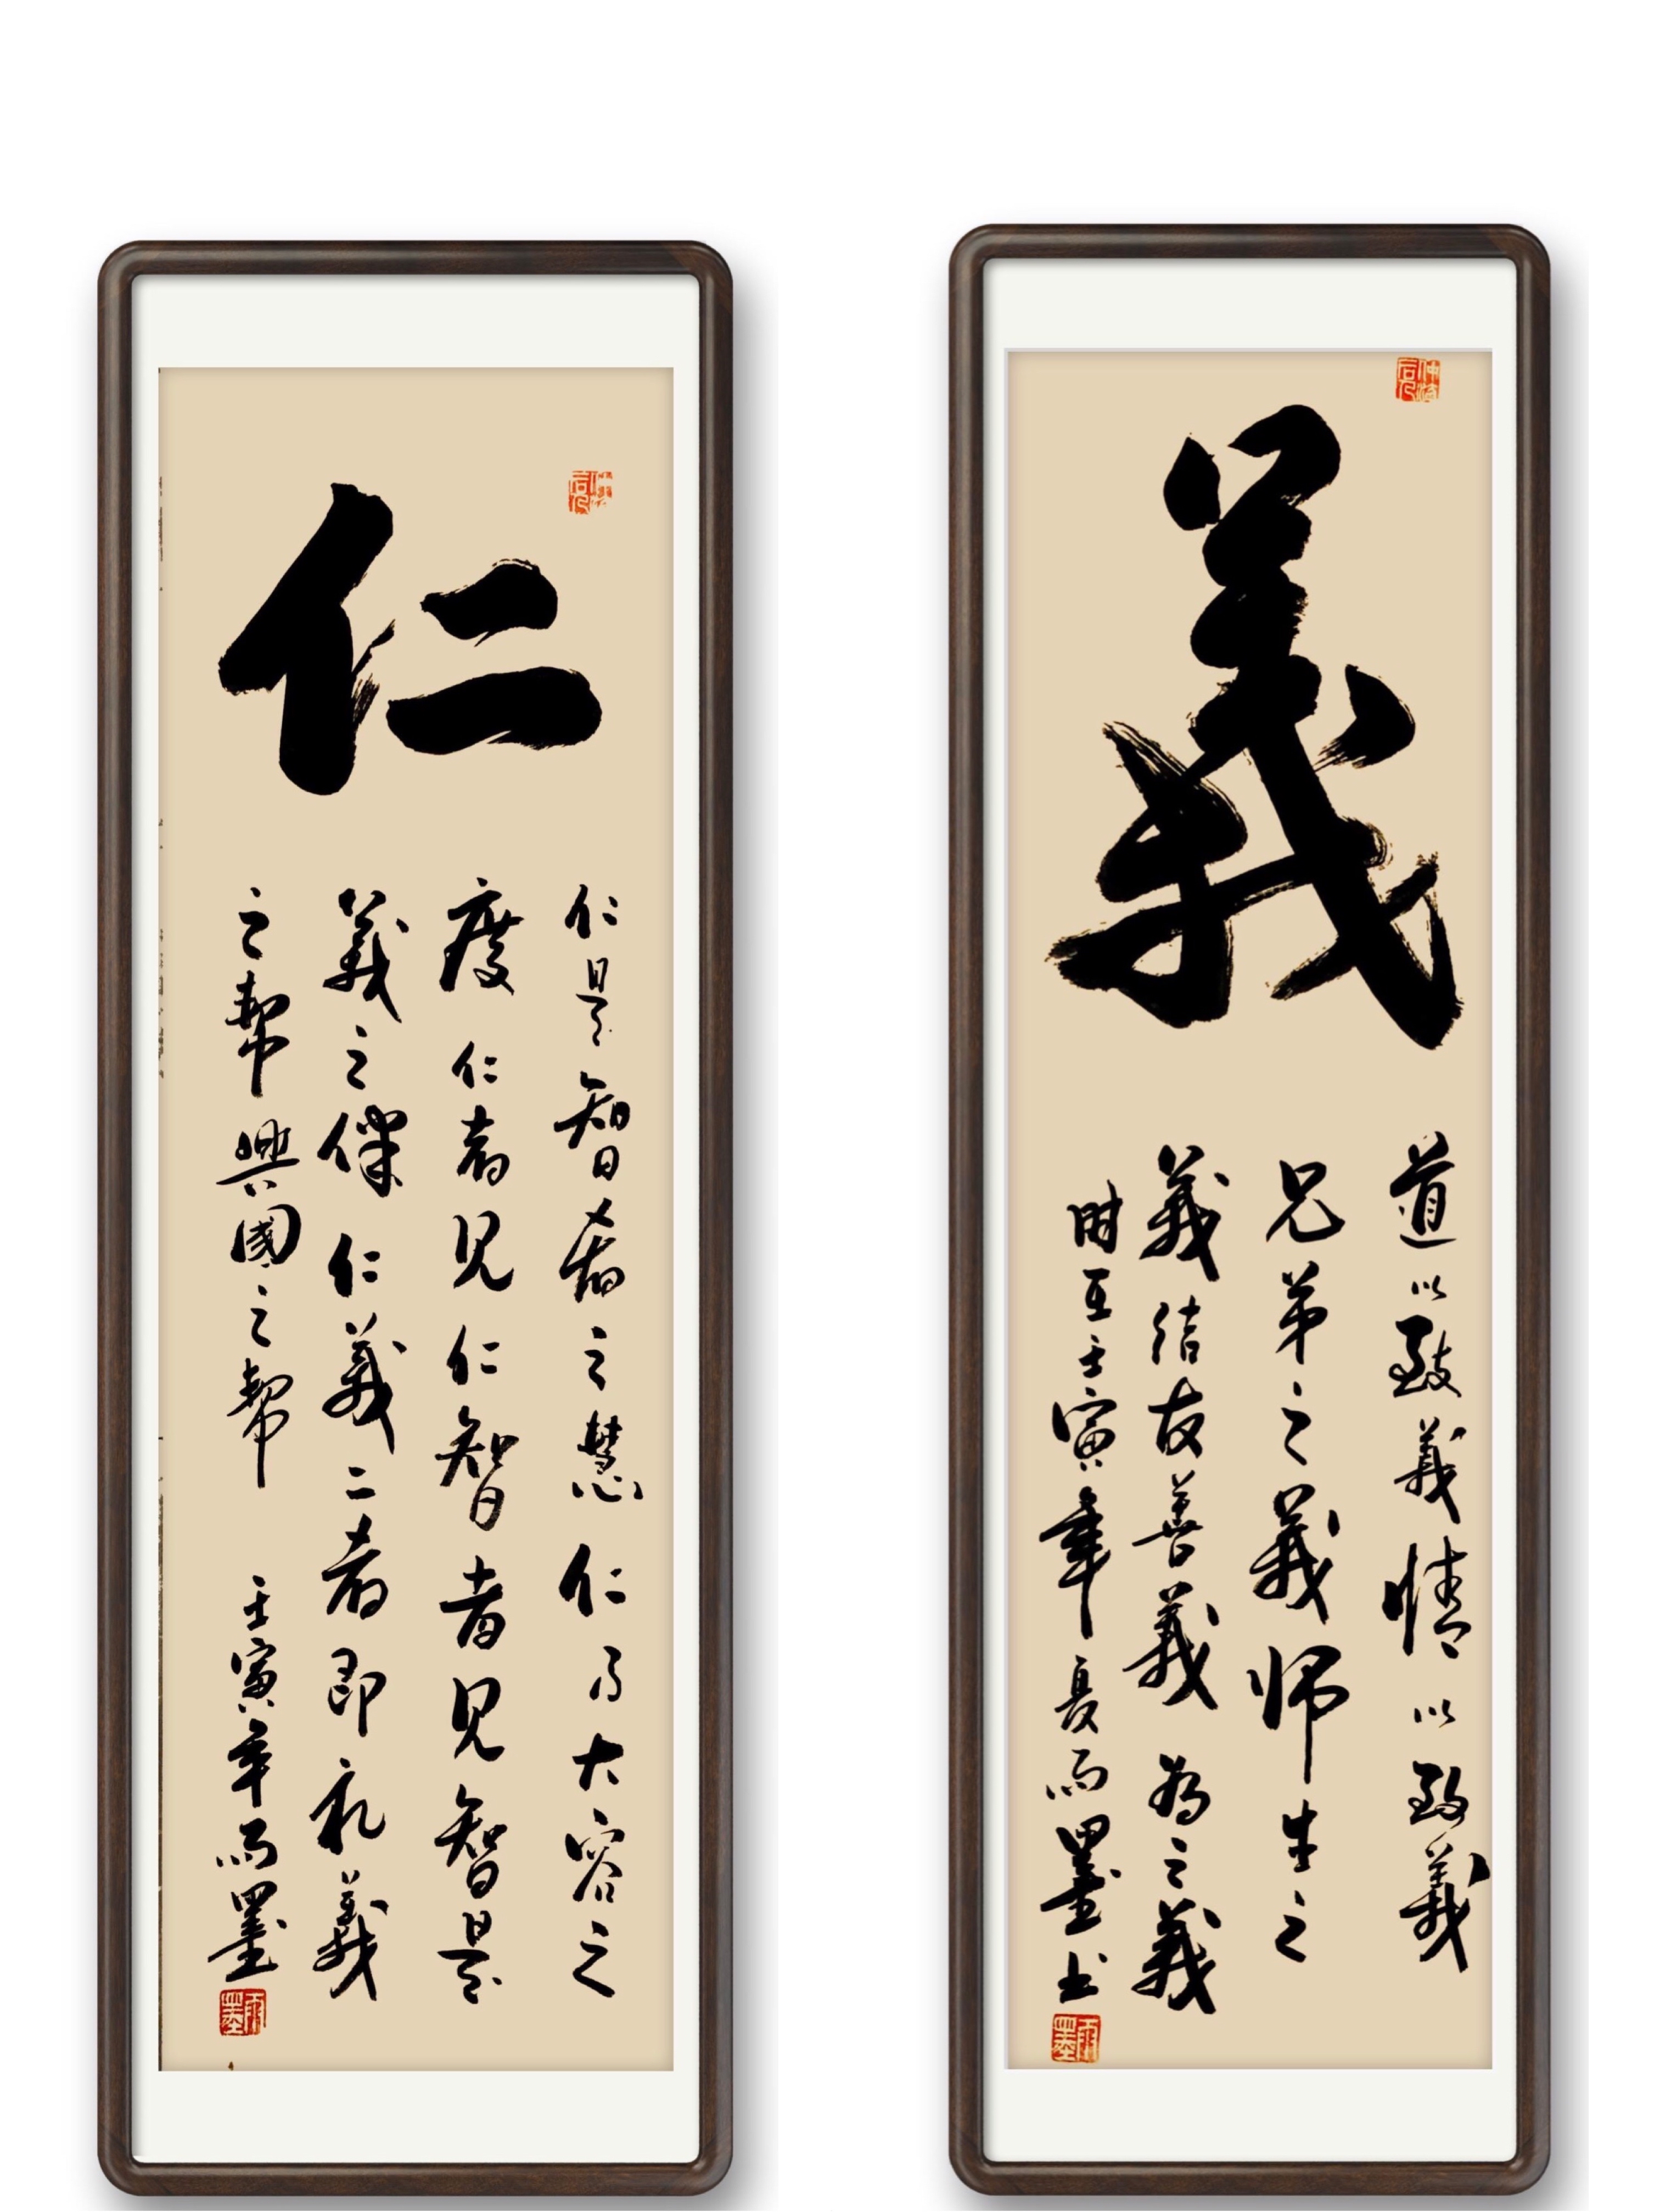 仁
仁是智者之慧仁乃大容之
度仁者见仁智者见智是
義之僕仁義二者即礼義
之幇興國之幇
壬寅年雨墨
雨墨
義
道以致義情以致義
兄弟之義师生之
義结友善義为之義
时在壬寅年夏雨墨书
雨墨